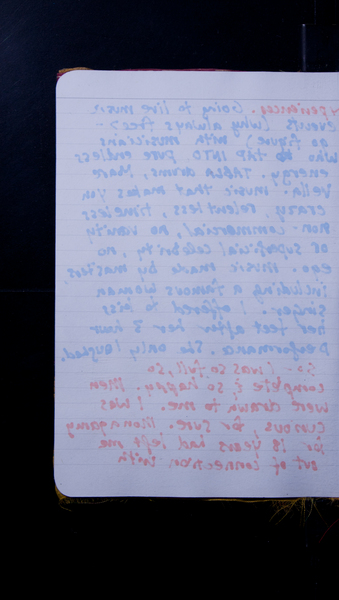 experiences. Going to live music
events (why always free? -
go figure) with musicians
who do TAP INTO PURE endless
energy. TABLA, drums, Mare
Vella. music that makes you
crazy, relentless, timeless
non-commercial, no vanity
or superficial celebrity, no
ego. music made by masters,
including a famous woman
singer. I offered to kiss
her feet after her 3 hour
performance. She only laughed.
I was so full, so
complete & so happy. Men
were drawn to me. I was
curious, for sure. Monogamy
for 18 years had left me
out of connection with